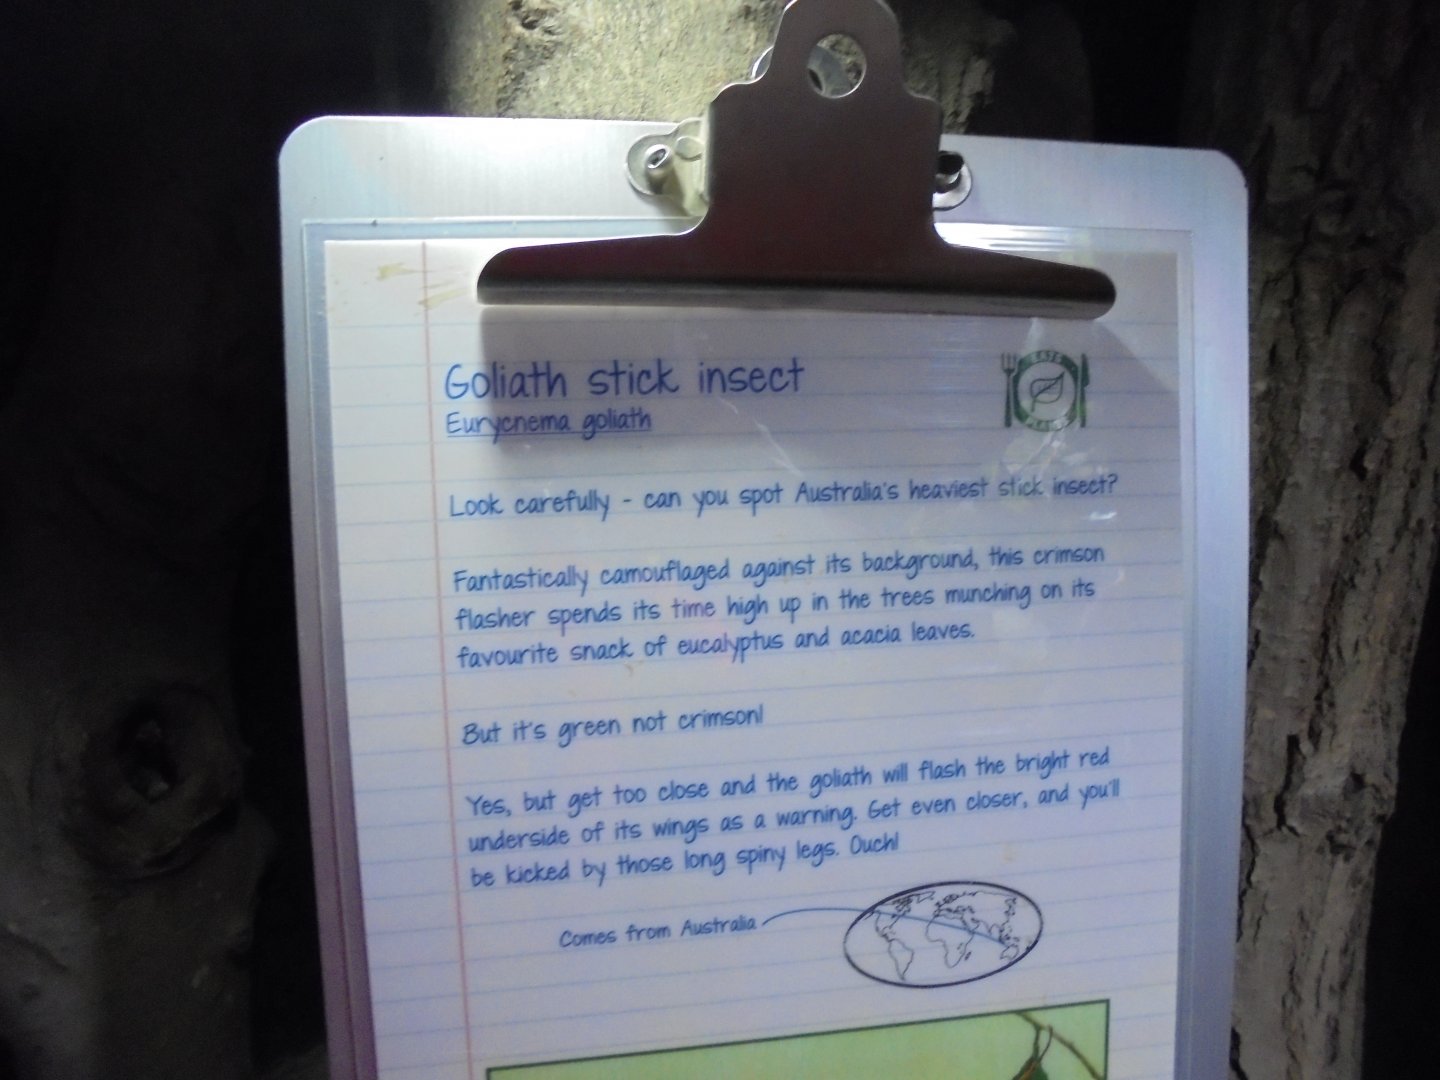 Goliath stick insect
Eurycnema goliath
EATS
PLANTS
Look carefully - can you spot Australia's heaviest stick insect?
Fantastically camouflaged against its background, this crimson
flasher spends its time high up in the trees munching on its
favourite snack of eucalyptus and acacia leaves.
But it's green not crimson!
Yes, but get too close and the goliath will flash the bright red
underside of its wings as a warning. Get even closer, and you'll
be kicked by those long spiny legs. Ouch!
Comes from Australia